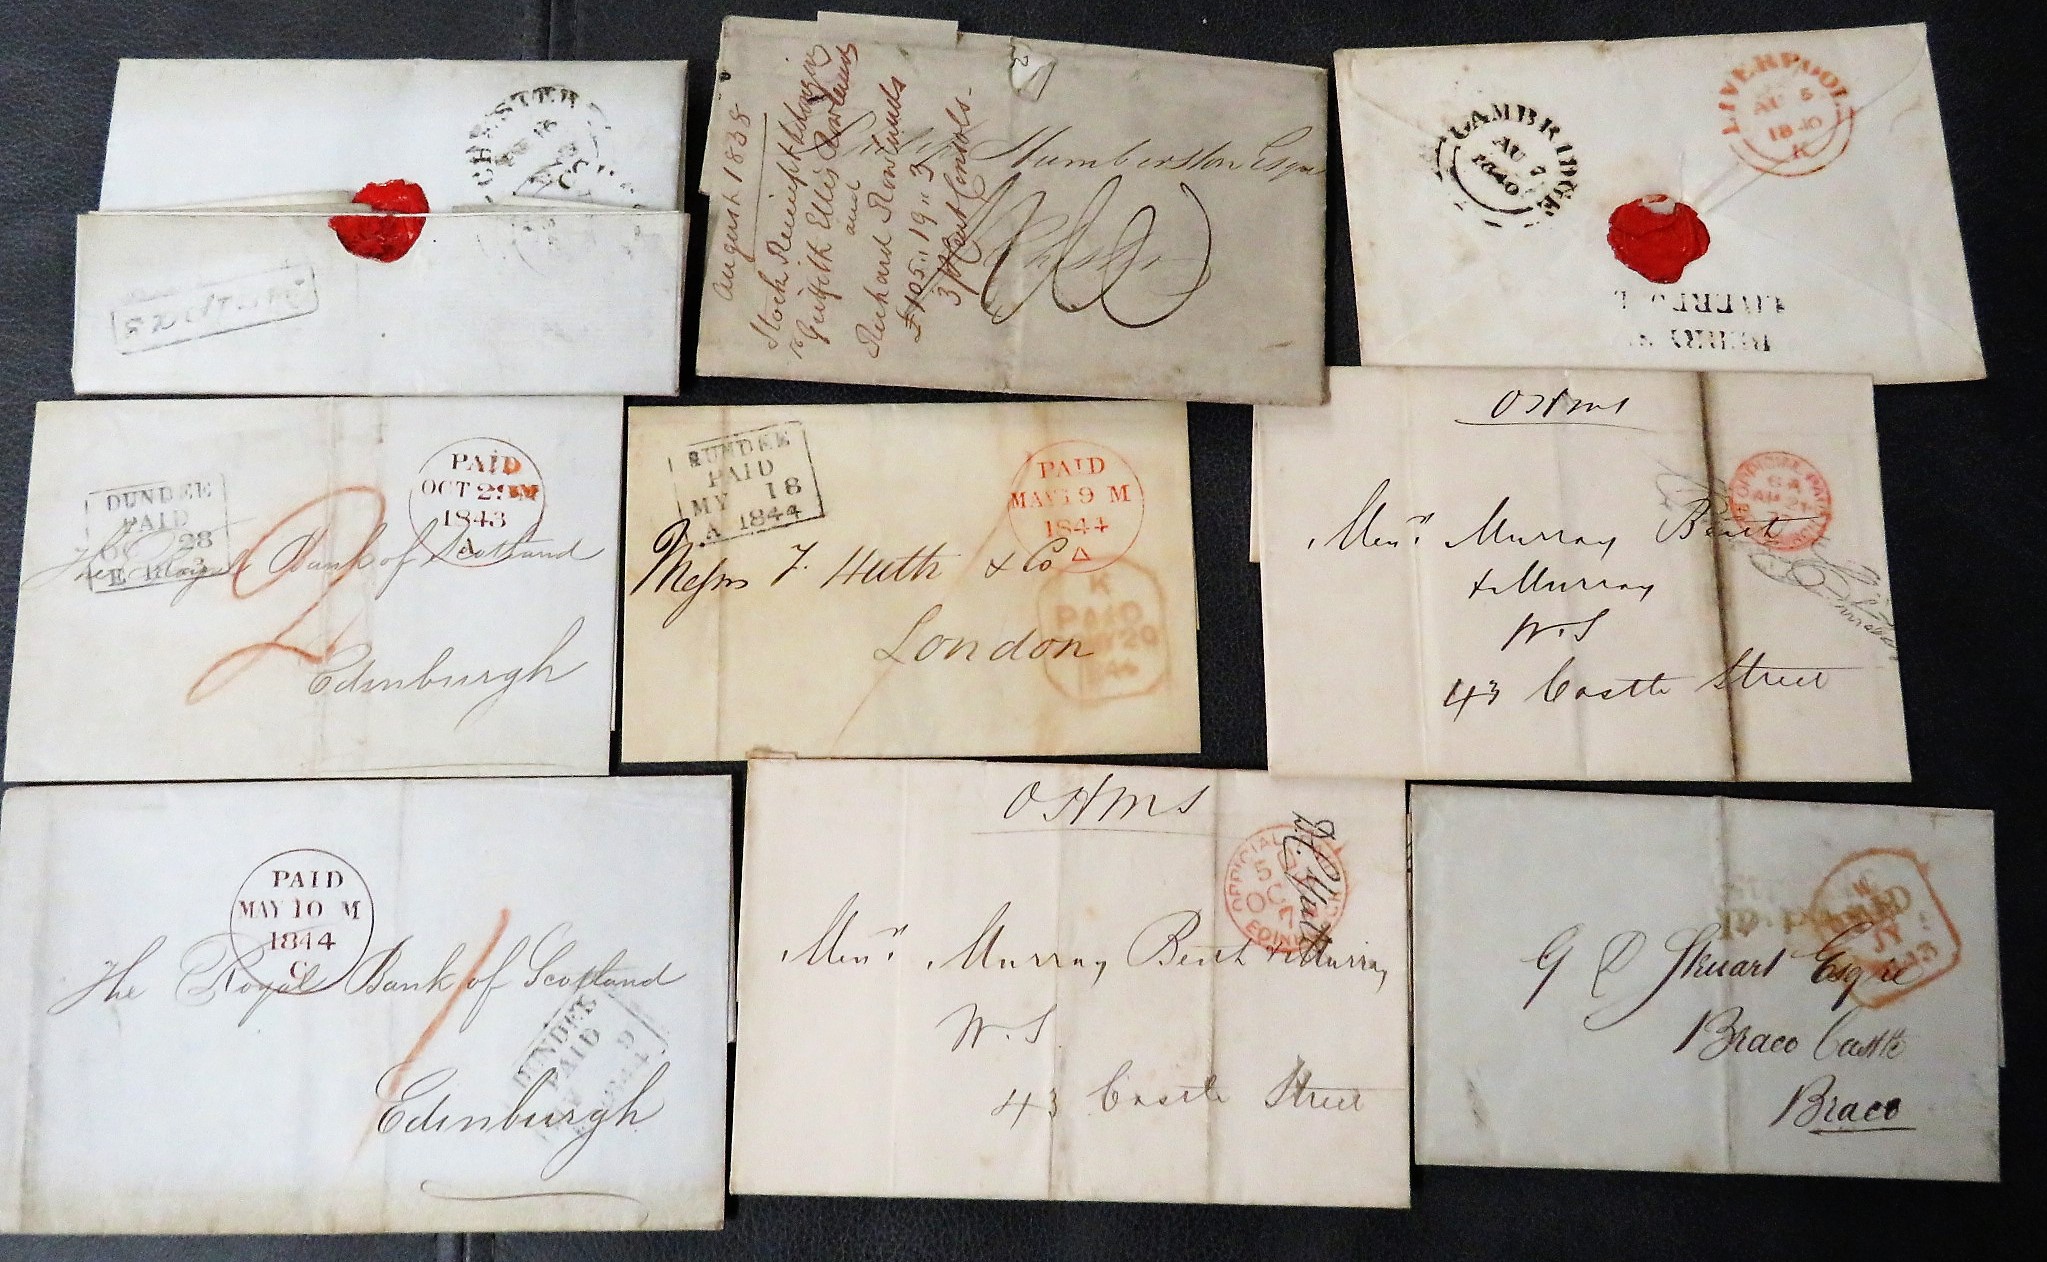 CHESTER
August 1838
Stock Receipt belonging
to Griffith Ellis Rowlands
and
Richard Rowlands
£105 " 19 " 3
3 P Cent Consols -
Humberston Esqre
Chester
2
CAMBRIDGE
AU 7
1840
LIVERPOOL
AU 5
1840
K
LIVERPOOL
DUNDEE
PAID
OC 28
E
PAID
OCT 29 M
1843
A
2
The Royal Bank of Scotland
Edinburgh
DUNDEE
PAID
MY 18
A 1844
PAID
MAY 19 M
1844
Messrs F. Huth & Co
London
K
PAID
MY 20
1844
OHMS
OFFICIAL PAID
AU 21
Messrs Murray Beith
& Murray
W.S
43 Castle Street
PAID
MAY 10 M
1844
C
The Royal Bank of Scotland
Edinburgh
1
DUNDEE
PAID
9
1844
OHMS
OFFICIAL
5
OC
7
EDINBURGH
Messrs Murray Beith & Murray
W.S.
43 Castle Street
PAID
JY
G D Stuart Esqre
Braco Castle
Braco